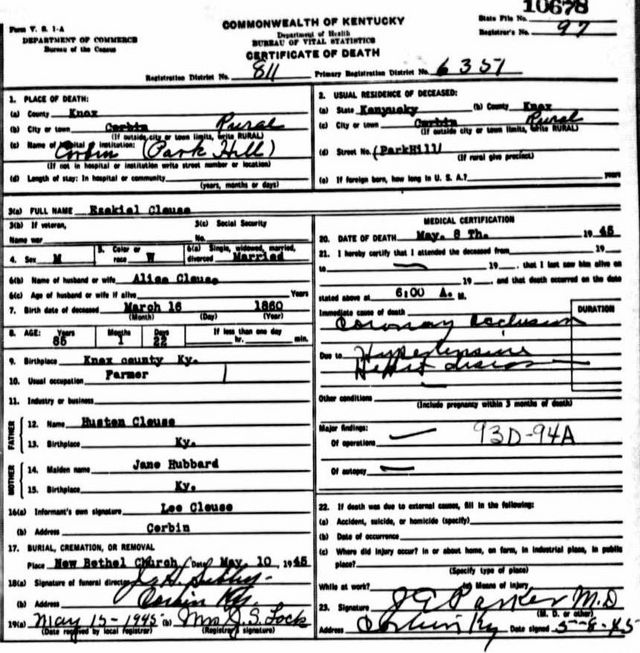 10678
Form V. S. 1-A
COMMONWEALTH OF KENTUCKY
State File No.
DEPARTMENT OF COMMERCE
Department of Health
Registrar's No. 97
Bureau of the Census
BUREAU OF VITAL STATISTICS
CERTIFICATE OF DEATH
Registration District No. 811 Primary Registration District No. 6351
1. PLACE OF DEATH:
(a) County Knox
(b) City or town Corbin Rural
(If outside city or town limits, write RURAL)
(c) Name of hospital or institution:
Corbin (Park Hill)
(If not in hospital or institution write street number or location)
(d) Length of stay: In hospital or community
(years, months or days)
2. USUAL RESIDENCE OF DECEASED:
(a) State Kenyucky (b) County Knox
(c) City or town Corbin Rural
(If outside city or town limits, write RURAL)
(d) Street No. (ParkHill)
(If rural give precinct)
(e) If foreign born, how long in U. S. A.? years
3(a) FULL NAME Ezekiel Clouse
3(b) If veteran, 3(c) Social Security
Name war No.
4. Sex M 5. Color or race W 6(a) Single, widowed, married, divorced Married
6(b) Name of husband or wife Alice Clouse
6(c) Age of husband or wife if alive Years
7. Birth date of deceased March 16 1860
(Month) (Day) (Year)
8. AGE: Years Months Days If less than one day
85 1 22 hr. min.
9. Birthplace Knox county Ky.
10. Usual occupation Farmer
11. Industry or business
FATHER
12. Name Husten Clouse
13. Birthplace Ky.
MOTHER
14. Maiden name Jane Hubbard
15. Birthplace Ky.
16(a) Informant's own signature Lee Clouse
(b) Address Corbin
17. BURIAL, CREMATION, OR REMOVAL
Place New Bethel Church Date May, 10 1945
18(a) Signature of funeral director
(b) Address Corbin Ky.
19(a) May 15-1945 (b) Mrs J. S. Lock
(Date received by local registrar) (Registrar's signature)
MEDICAL CERTIFICATION
20. DATE OF DEATH May. 8 Th. 1945
21. I hereby certify that I attended the deceased from 19
to 19 , that I last saw him alive on
19 , and that death occurred on the date
stated above at 6:00 A. M.
Immediate cause of death DURATION
Coronary Occlusion
Due to Hypertensive
Heart disease
Other conditions
(Include pregnancy within 3 months of death)
Major findings:
Of operations 93D-94A
Of autopsy
22. If death was due to external causes, fill in the following:
(a) Accident, suicide, or homicide (specify)
(b) Date of occurrence
(c) Where did injury occur? In or about home, on farm, in industrial place, in public
place?
(Specify type of place)
While at work? (e) Means of injury
23. Signature J G Parker M.D
(M. D. or other)
Address Corbin Ky Date signed 5-8-45